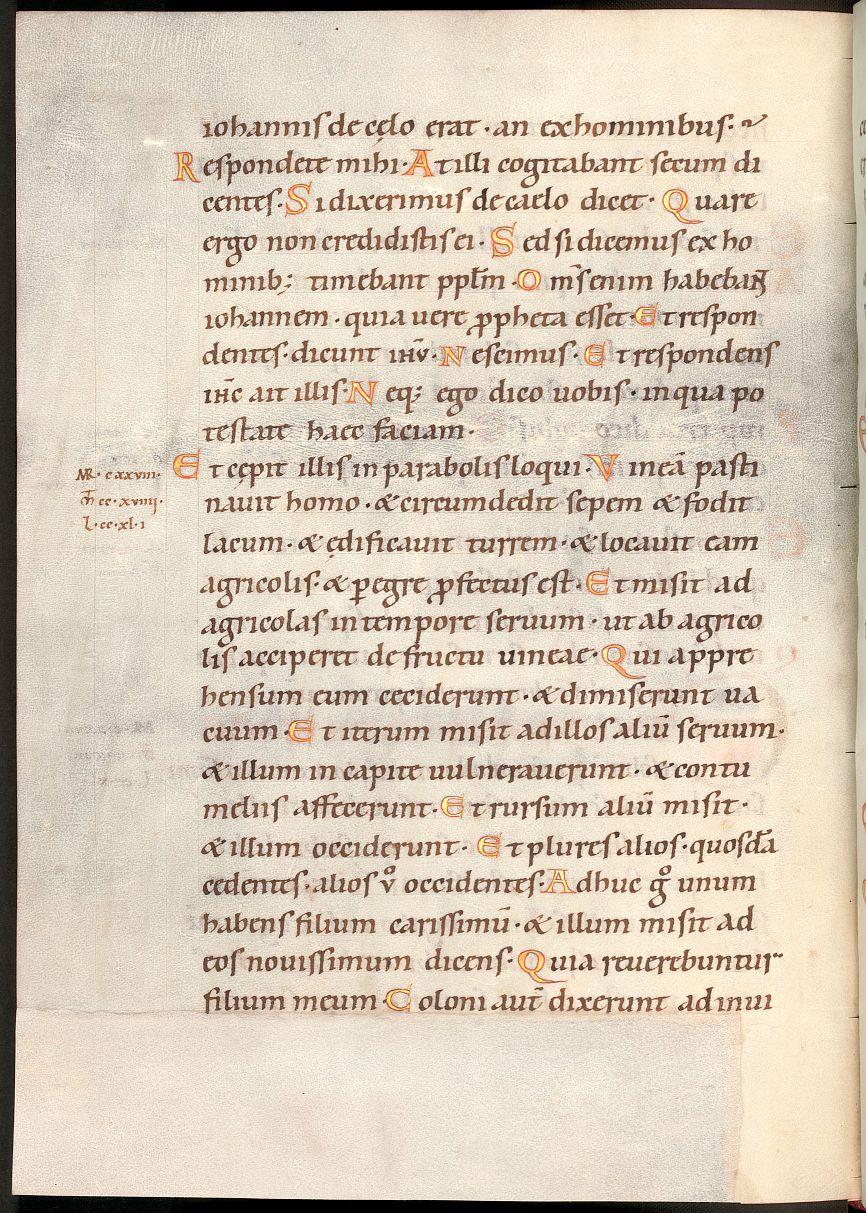 iohannis de cęlo erat · an ex hominibus ·
Respondete mihi · At illi cogitabant secum di
centes · Si dixerimus de caelo dicet · Quare
ergo non credidistis ei · Sed si dicemus ex ho
minib; timebant ppl̄m · Om̄s enim habebant
iohannem · quia uere ꝓpheta esset · Et respon
dentes · dicunt ih̄v · Nescimus · Et respondens
ih̄c ait illis · Neq; ego dico uobis · in qua po
testate haec faciam ·
MR · cxxviii ·
M̄ cc · xviiii ·
L · cc · xl · i
Et cępit illis in parabolis loqui · Vineā pasti
nauit homo · & circumdedit sepem & fodit
lacum · & ędificauit turrem · & locauit eam
agricolis · & ꝑegre ꝓfectus est · Et misit ad
agricolas in tempore seruum · ut ab agrico
lis acciperet de fructu uineae · Qui appre
hensum eum ceciderunt · & dimiserunt ua
cuum · Et iterum misit ad illos aliū seruum ·
& illum in capite uulnerauerunt · & contu
meliis affecerunt · Et rursum aliū misit ·
& illum occiderunt · Et plures alios · quosdā
cedentes · alios vͦ occidentes · Adhuc gͦ unum
habens filium carissimū · & illum misit ad
eos nouissimum dicens · Quia reuerebuntur
filium meum · Coloni aut̄ dixerunt ad inui